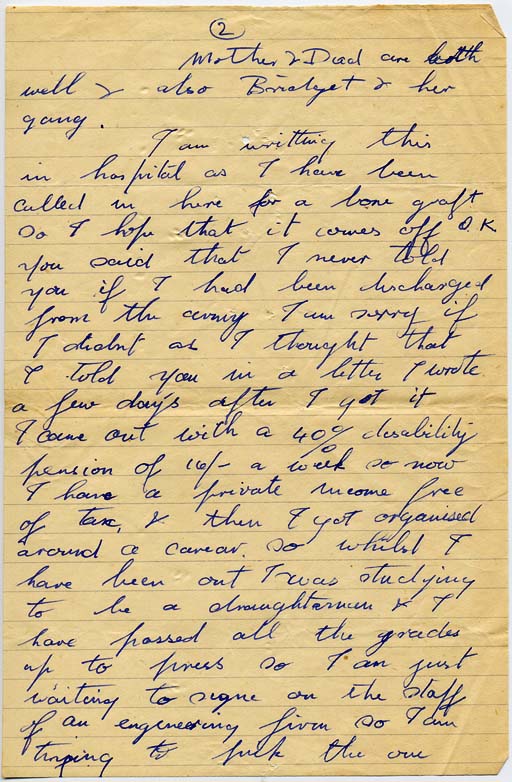 2
Mother & Dad are both
well & also Bridget & her
gang.
I am writting this
in hospital as I have been
called in here for a bone graft
so I hope that it comes off O.K.
You said that I never told
you if I had been discharged
from the army I am sorry if
I didnt as I thought that
I told you in a letter I wrote
a few days after I got it
I came out with a 40% disability
pension of 16/- a week so now
I have a private income free
of tax, & then I got organised
around a carear. so whilst I
have been out I was studying
to be a draughtsman & I
have passed all the grades
up to press so I am just
waiting to signe on the staff
of an engineering firm so I am
trying to pick the one